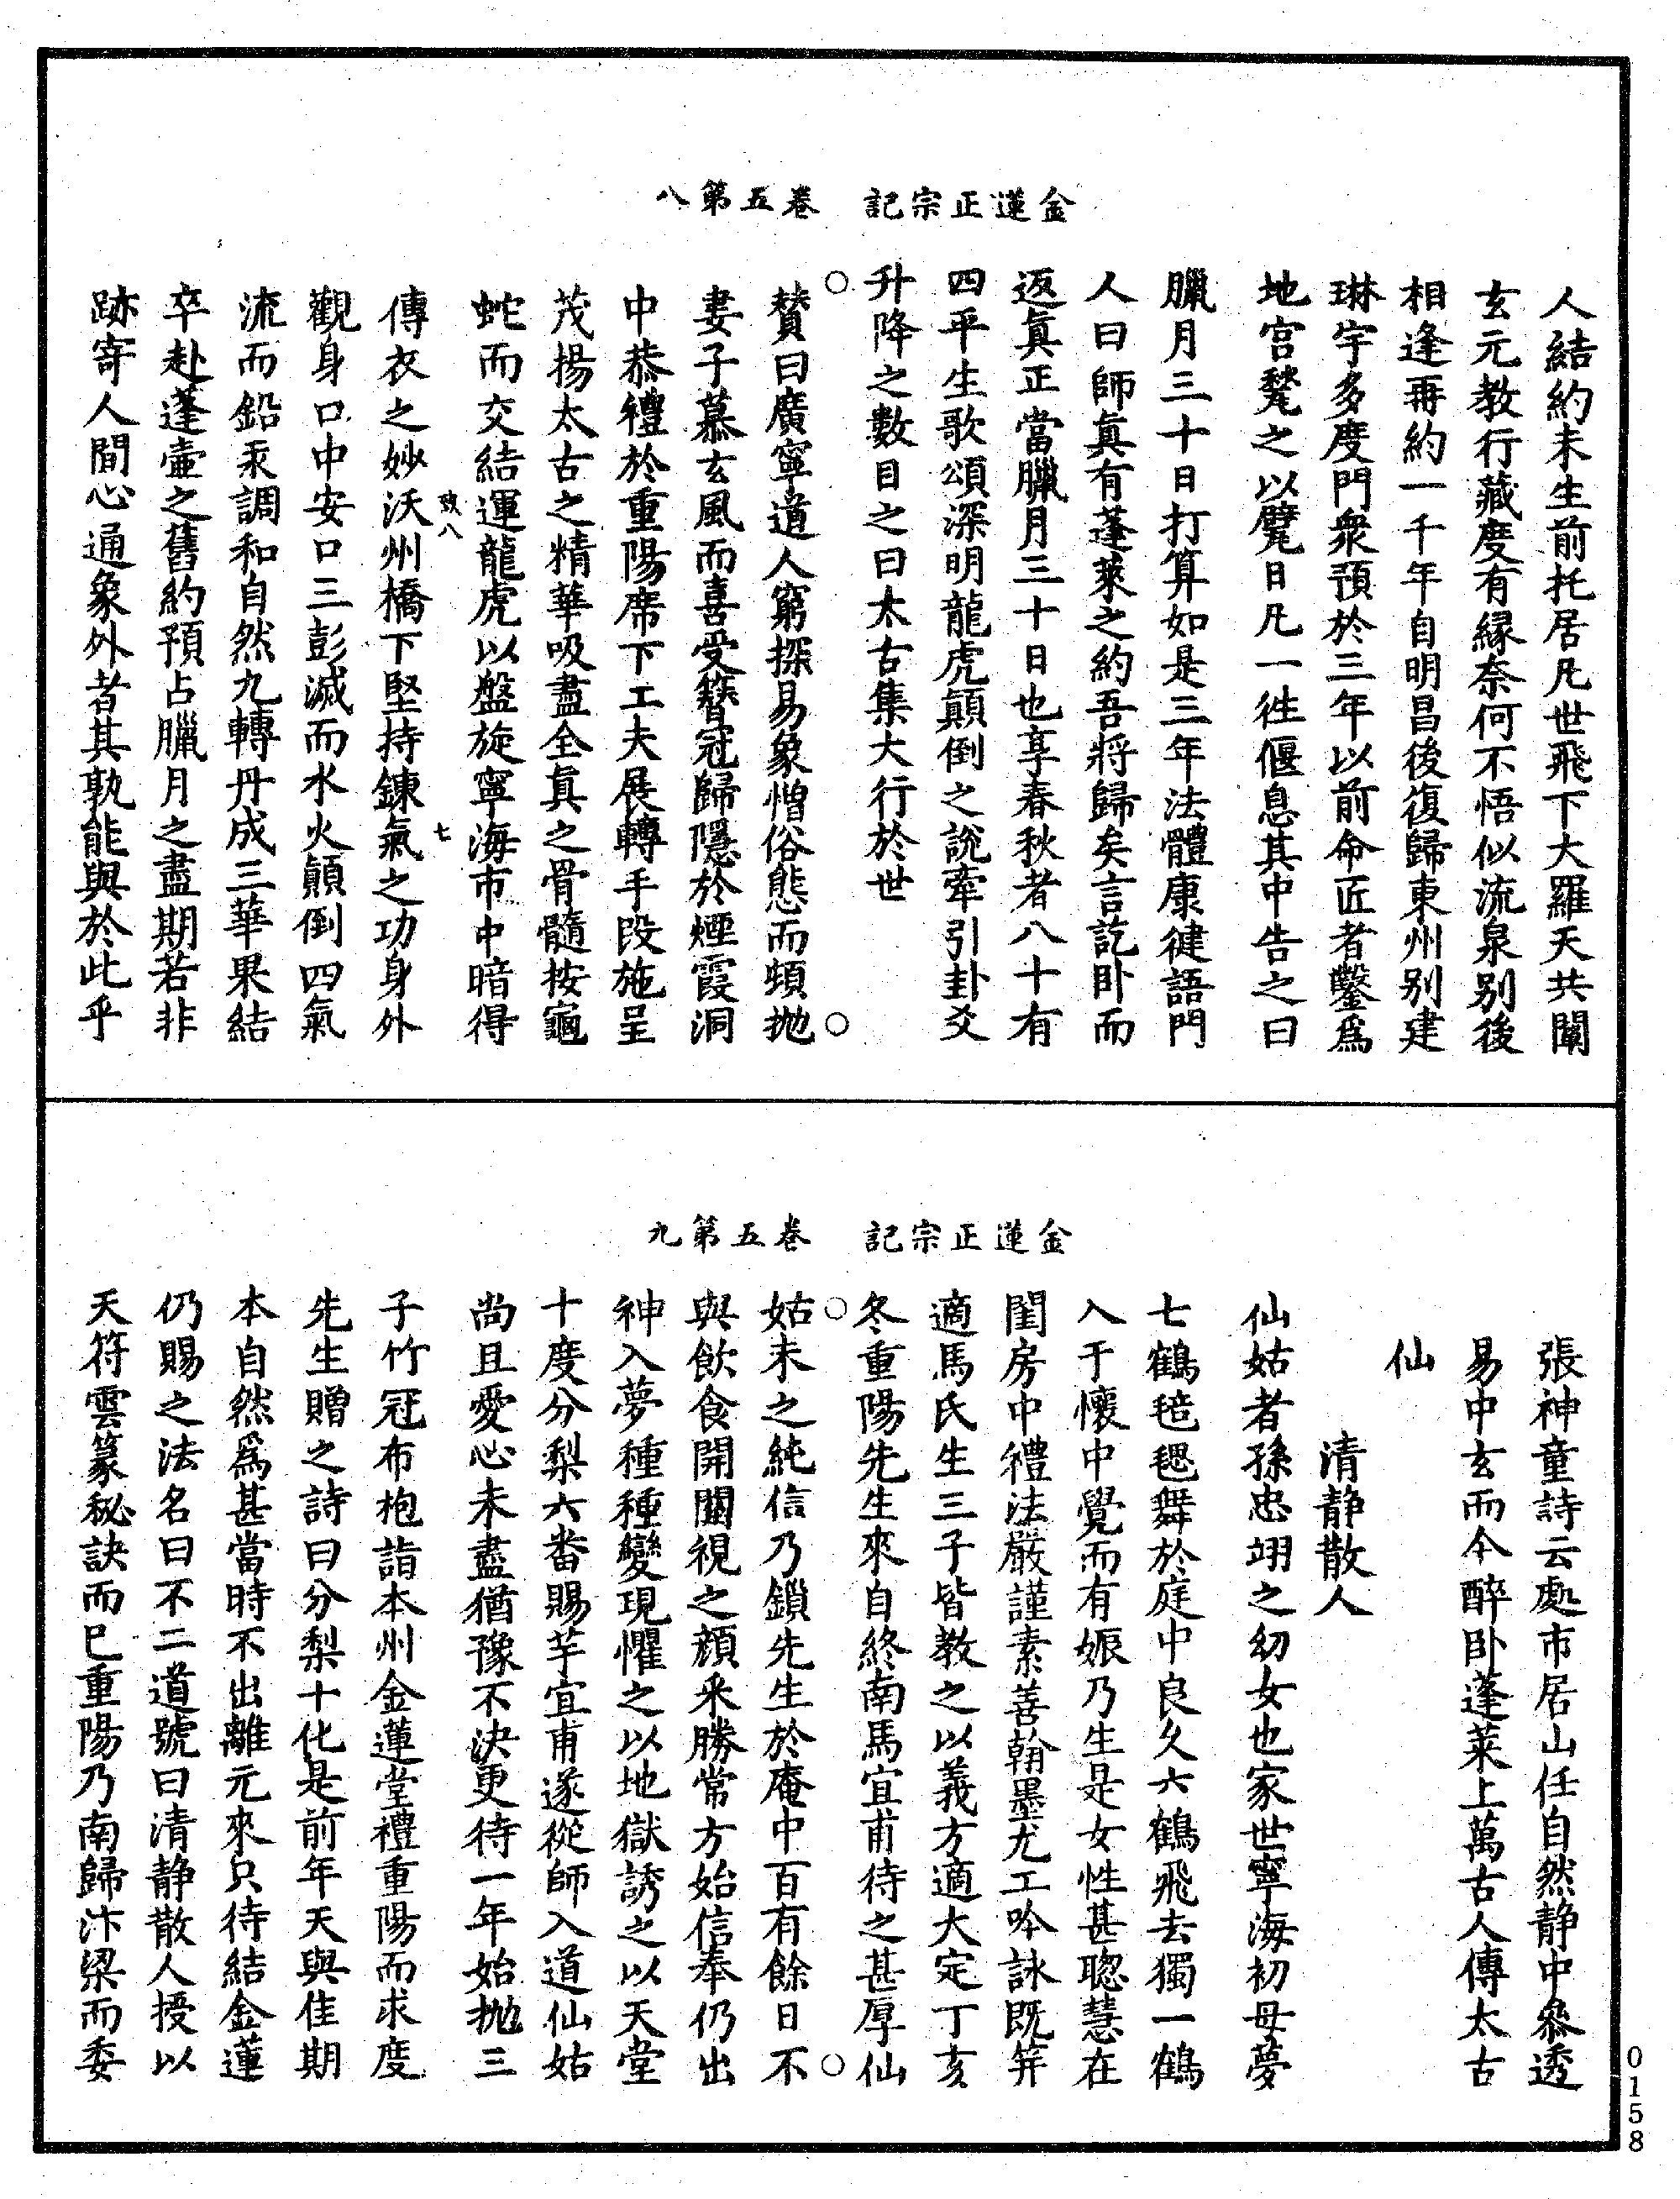 金蓮正宗記　卷五第八
人結約未生前托居凡世飛下大羅天共闡
玄元教行藏度有緣奈何不悟似流泉别後
相逢再約一千年自明昌後復歸東州别建
琳宇多度門衆預於三年以前命匠者鑿爲
地宮甃之以甓日凡一徃偃息其中告之曰
臘月三十日打算如是三年法體康健語門
人曰師眞有蓬萊之約吾將歸矣言訖卧而
返眞正當臘月三十日也享春秋者八十有
四平生歌頌深明龍虎顛倒之說牽引卦爻
升降之數目之曰太古集大行於世
○
○
贊曰廣寧道人窮探易象憎俗態而頻抛
妻子慕玄風而喜受簪冠歸隱於煙霞洞
中恭禮於重陽席下工夫展轉手段施呈
茂揚太古之精華吸盡全真之骨髓按龜
蛇而交結運龍虎以盤旋寧海市中暗得
致八
七
傳衣之妙沃州橋下堅持鍊氣之功身外
觀身口中安口三彭滅而水火顛倒四氣
流而鉛汞調和自然九轉丹成三華果結
卒赴蓬壺之舊約預占臘月之盡期若非
跡寄人間心通象外者其孰能與於此乎
金蓮正宗記　卷五第九
張神童詩云處市居山任自然静中叅透
易中玄而今醉卧蓬萊上萬古人傳太古
仙
清静散人
仙姑者孫忠翊之幼女也家世寧海初母夢
七鶴毰毸舞於庭中良久六鶴飛去獨一鶴
入于懷中覺而有娠乃生是女性甚聦慧在
閨房中禮法嚴謹素善翰墨尤工吟詠既笄
適馬氏生三子皆教之以義方適大定丁亥
冬重陽先生來自終南馬宜甫待之甚厚仙
○
○
姑未之純信乃鎖先生於庵中百有餘日不
與飲食開關視之顔采勝常方始信奉仍出
神入夢種種變現懼之以地獄誘之以天堂
十度分梨六番賜芋宜甫遂從師入道仙姑
尚且愛心未盡猶豫不決更待一年始抛三
子竹冠布袍詣本州金蓮堂禮重陽而求度
先生贈之詩曰分梨十化是前年天與佳期
本自然爲甚當時不出離元來只待結金蓮
仍賜之法名曰不二道號曰清静散人授以
天符雲篆秘訣而已重陽乃南歸汴梁而委
0158